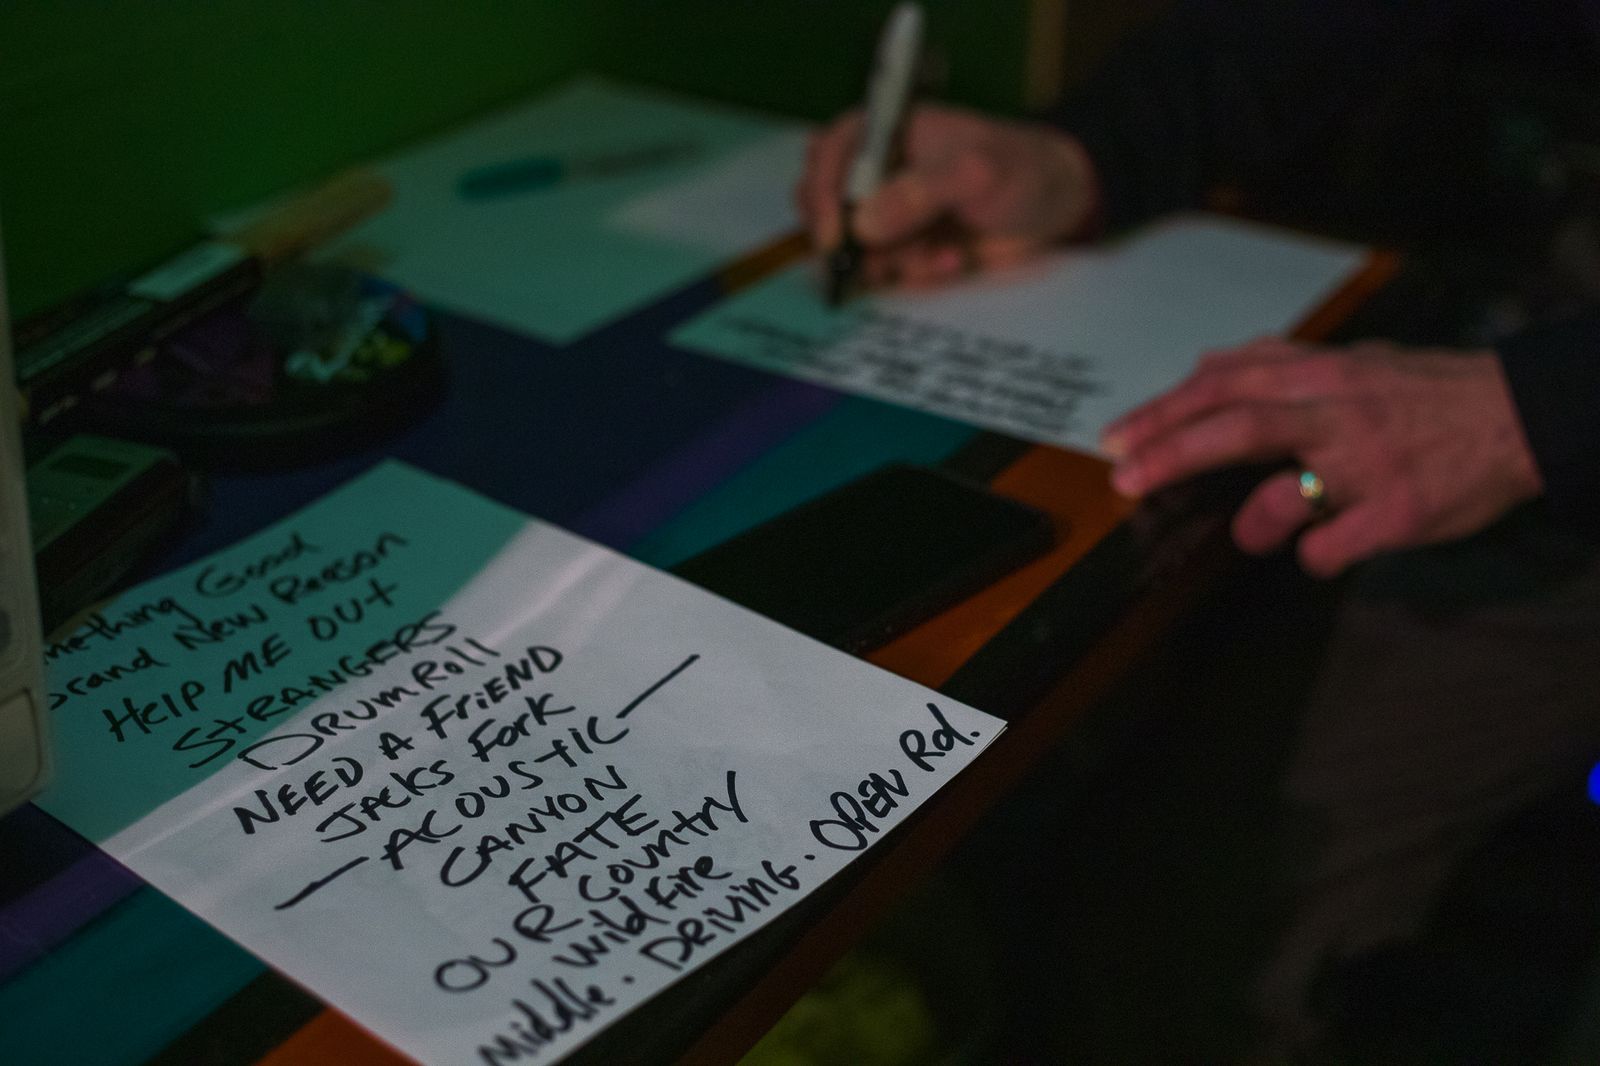 mething Good
Brand New Reason
HELP ME OUT
STRANGERS
DRUM Roll
NEED A FRiEND
JACKS FORK
— ACOUSTIC —
CANYON
FATE
OUR COUNTRY
WildFire
Middle. DRIVING. OPEN Rd.